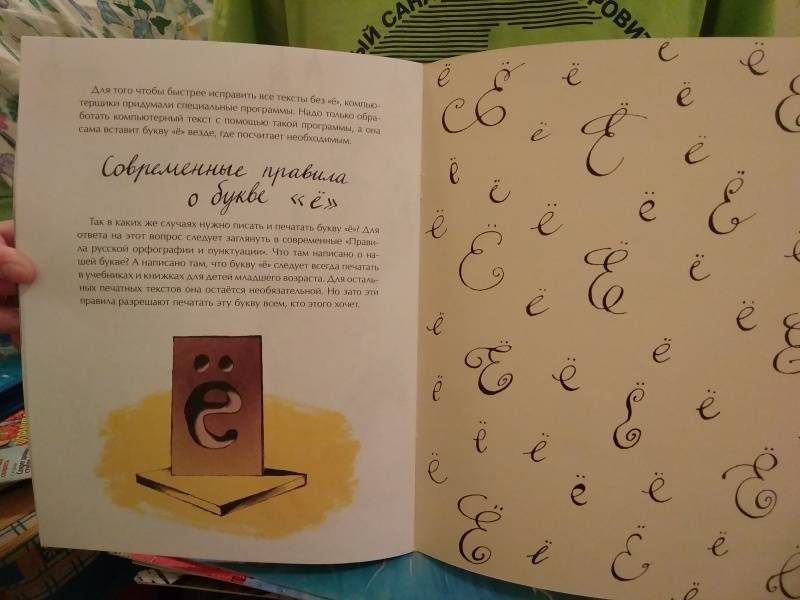 Для того чтобы быстрее исправить все тексты без «ё», компью-
терщики придумали специальные программы. Надо только обра-
ботать компьютерный текст с помощью такой программы, а она
сама вставит букву «ё» везде, где посчитает необходимым.
Современные правила
о букве «ё»
Так в каких же случаях нужно писать и печатать букву «ё»? Для
ответа на этот вопрос следует заглянуть в современные «Прави-
ла русской орфографии и пунктуации». Что там написано о на-
шей букве? А написано там, что букву «ё» следует всегда печатать
в учебниках и книжках для детей младшего возраста. Для осталь-
ных печатных текстов она остаётся необязательной. Но зато эти
правила разрешают печатать эту букву всем, кто этого хочет.
ё
ё Ё ё ё ё
ё Ё ё Ё
ё ё ё ё Ё
ё Ё ё Ё ё
ё Ё ё ё Ё
ё ё Ё ё
ё ё ё ё ё Ё
Ё ё Ё ё